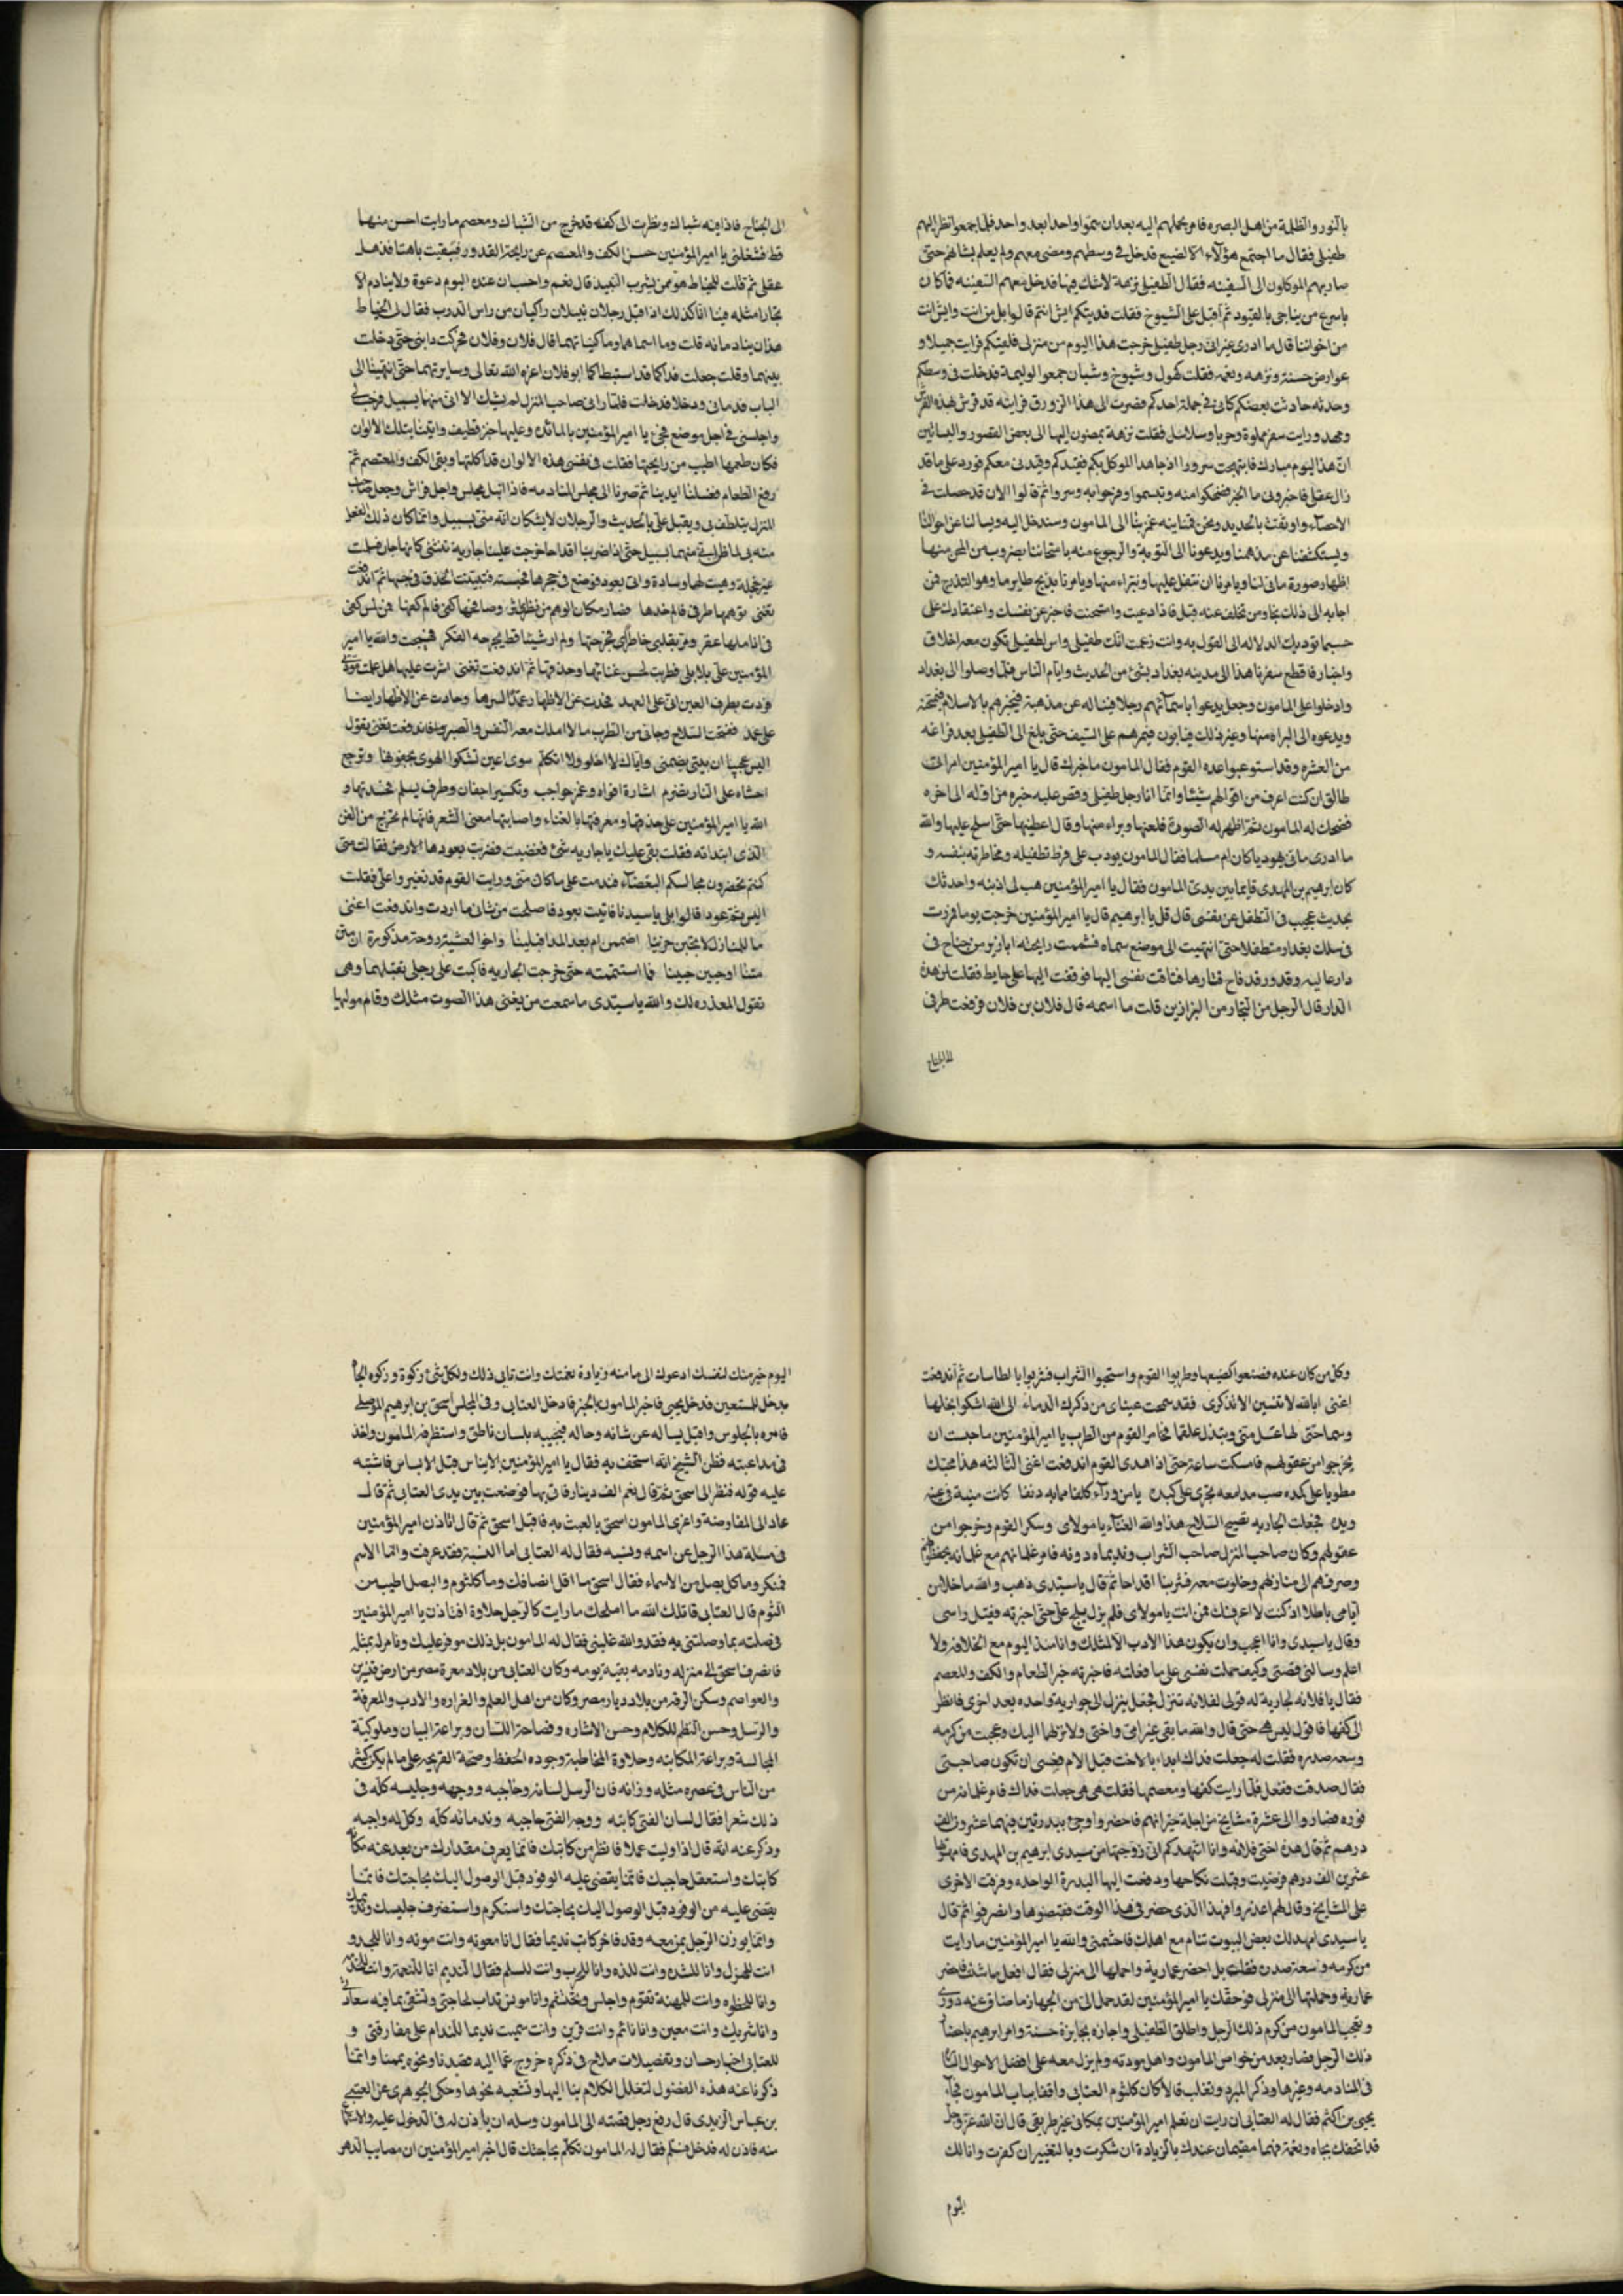 بالنور والظلمة من اهل البصره فامر بحملهم اليه بعد ان سموا واحدا بعد واحد فلما جمعوا نظر اليهم
طفيلى فقال ما اجتمع هؤلاء الا لضيع فدخل فى وسطهم ومضى معهم ولم يعلم بشانهم حتى
صار بهم الموكلون الى السفينه فقال الطفيلى نزهة لا شك فيها فدخل معهم السفينه فما كان
باسرع من ان جى بالقيود ثم اقبل على الشيوخ فقلت فديتكم ايش انتم قالوا بل من انت وايش انت
من اخواننا قال ما ادرى غير انى رجل طفيلى خرجت هذا اليوم من منزلى فلقيتكم فرايت جميلا و
عوارض حسنة ونزهه ونعمه فقلت كهول وشيوخ وشبان جمعوا لوليمة فدخلت فى وسطكم
وحدثه حادثت بعضكم كانى فى جملة احدكم فضرت الى هذا الزورق فرايته قد فرش بهذه الفرش
ومهد ورايت سفر مملوة وجربا وسلاسل فقلت نزهة يمضون اليها الى بعض القصور والبساتين
ان هذا اليوم مبارك فابتهجت سرورا اذ جاء هذا الموكل بكم فقيدكم وقيدنى معكم فورد على ما قد
زال عقلى فاخبرونى ما الخبر فضحكوا منه وتبسموا وفرحوا به وسروا ثم قالوا الان قد حصلت فى
الاحصاء واوثقت بالحديد ونحن فمانيه غمز بنا الى المامون وسندخل اليه ويسالنا عن احوالنا
ويستكشفنا عن مذهبنا ويدعونا الى التوبة والرجوع منه بامتحاننا بضروب من المحن منها
اظهار صورة مانى لنا ويامرنا ان نتفل عليها ونتبراء منها ويامرنا بذبح طاير ماء وهو التدرج فمن
اجابه الى ذلك نجا ومن تخلف عنه قتل فاذا دعيت وامتحنت فاخبر عن نفسك واعتقادك على
حسب ما توديك الدلاله الى القول به وانت زعمت انك طفيلى والطفيلى تكون معه اخلاق
واخبار فاقطع سفرنا هذا الى مدينه بغداد بشئ من الحديث وايام الناس فلما وصلوا الى بغداد
وادخلوا على المامون وجعل يدعوا باسمائهم رجلا رجلا فيساله عن مذهبه فيخبرهم بالاسلام فيمتحنه
ويدعوه الى البراه منها وغير ذلك فيابون فيمرهم على السيف حتى بلغ الى الطفيلى بعد فراغه
من العشره وقد استوعبوا عده القوم فقال المامون ما خبرك قال يا امير المؤمنين امراتى
طالق ان كنت اعرف من اقوالهم شيئا وانما انا رجل طفيلى وقص عليه خبره من اوله الى اخره
فضحك له المامون ثم اظهر له الصورة فلعنها وبراء منها وقال اعطنيها حتى اسلح عليها والله
ما ادرى مانى يهوديا كان ام مسلما فقال المامون يودب على فرط تطفيله ومخاطرته بنفسه و
كان ابرهيم بن المهدى قايما بين يدى المامون فقال يا امير المؤمنين هب لى ذنبه واحدثك
بحديث عجيب فى التطفل عن نفسى قال قل يا ابرهيم قال يا امير المؤمنين خرجت يوما فمررت
فى سكك بغداد متطفلا حتى انتهيت الى موضع سماه فشممت رايحه ابازير من جناح فى
دار عاليه وقدور قد فاح قتارها فتاقت نفسى اليها فوقفت اليها على حايط فقلت لمن هذه
الدار قال الرجل من التجار من البزازين قلت ما اسمه قال فلان بن فلان فرفعت طرفى
الى الجناح
الى الجناح فاذا فيه شباك ونظرت الى كفه قد خرج من الشباك ومعصم ما رايت احسن منها
قط فشغلنى يا امير المؤمنين حسن الكف والمعصم عن رايحة القدور فبقيت باهتا قد ذهل
عقلى ثم قلت للخياط هو ممن يشرب النبيذ قال نعم واحسب ان عنده اليوم دعوة ولا ينادم الا
تجارا مثله فبينا انا كذلك اذا اقبل رجلان نبيلان راكبان من راس الدرب فقال لى الخياط
هذان ينادمانه قلت وما اسماهما وما كنياتهما قال فلان وفلان فحركت دابتى حتى دخلت
بينهما وقلت جعلت فداكما قد استبطاكما ابو فلان اعزه الله تعالى وسايرتهما حتى انتهينا الى
الباب فدمانى ودخلا فدخلت فلما رانى صاحب المنزل لم يشك الا انى منهما بسبيل فرحب بى
واجلسنى فى اجل موضع فجئ يا امير المؤمنين بالمائده وعليها خبز قطيف واتينا بتلك الالوان
فكان طعمها اطيب من رايحتها فقلت فى نفسى هذه الالوان قد اكلتها وبقى الكف والمعتصم ثم
رفع الطعام فغسلنا ايدينا ثم صرنا الى مجلس المنادمه فاذا انبل مجلس واجل فراش وجعل صاحب
المنزل يتلطف بى ويقبل على بالحديث والرجلان لا يشكان انه منى بسبيل وانما كان ذلك الفعل
منه بى لما ظن انى منهما بسبيل حتى اذا شربنا اقداحا خرجت علينا جارية تتثنى كانها جان فسلمت
غير خجلة وهيت لها وسادة واتى بعود فوضع فى حجرها فجسته فتبينت الحذق فى جسها ثم اندفعت
تغنى توهمها طرفى فالم خدها فصار مكان الوهم من نظرى اثر وصافحها كفى فالم كفها فمن لمس كفى
فى اناملها عقر ومر بقلبى خاطرى فجرحتها ولم ار شيئا قط يجرحه الفكر فهيجت والله يا امير
المؤمنين على بلابلى فطربت لحسن غنائها وحذقها ثم اندفعت تغنى اشرت عليها هل علمت مودتى
فردت بطرف العين انى على العهد فحدت عن الاظهار عمدا لسرها وحادت عن الاظهار ايضا
على عمد فصحت السلاح وجاءنى من الطرب ما لا املك معه النفس والصبر فاندفعت تغنى بقول
اليس عجيبا ان بيتى يضمنى واياك لا اخلو ولا اتكلم سوى اعين تشكوا الهوى بجفونها وترجع
احشاء على النار تضرم اشارة افواه وغمز حواجب وتكسير اجفان وطرف يسلم فحسدتها و
الله يا امير المؤمنين على حذقها ومعرفتها بالغناء واصابتها معنى الشعر فانها لم تخرج من الفن
الذى ابتداته فقلت بقى عليك يا جاريه شئ فغضبت فضربت بعودها الارض فقالت متى
كنتم تحضرون مجالسكم البغضاء فندمت على ما كان منى ورايت القوم قد تغير واعلى فقلت
اليس ثم عود قالوا بلى يا سيدنا فاتيت بعود فاصلحت من شانى ما اردت واندفعت اغنى
ما للمنازل لا يجبن حزينا اصممن ام بعد المدا فبلينا واحوا لعشية روحة مذكورة ان متن
متنا او حيين حيينا فما استتمته حتى خرجت الجاريه فاكبت على رجلى تقبلهما وهى
تقول المعذره لك والله يا سيدى ما سمعت من يغنى هذا الصوت مثلك وقام مولاها
وكل من كان عنده فصنعوا كضيعها وطربوا القوم واستحبوا الشراب فشربوا بالطاسات ثم اندفعت
اغنى ابالله لا تنسين الا تذكرى فقد سمحت عيناى من ذكرك الدماء الى الله اشكوا بخلها
وسماحتى لها عسل منى وتبذل علقما فخامر القوم من الطرب يا امير المؤمنين ما حسبت ان
يخرجوا من عقولهم فامسكت ساعة حتى اذا هدى القوم اندفعت اغنى الثالثه هذا محبك
مطويا على كمده صب مدامعه تجرى على كبده
ويده فجعلت الجاريه تصيح السلاح هذا والله الغناء يا مولاى وسكر القوم وخرجوا من
عقولهم وكان صاحب المنزل صاحب الشراب ونديماه دونه فامر غلمانهم مع غلمانه بحفظهم
وصرفهم الى منازلهم وخلوت معه فشربنا اقداحا ثم قال يا سيدى ذهب والله ما خلا من
ايامى باطلا اذ كنت لا اعرفك فمن انت يا مولاى فلم يزل يلح على حتى اخبرته فقبل راسى
وقال يا سيدى وانا اعجب وان يكون هذا الادب الا لمثلك وانا منذ اليوم مع الخلافه ولا
اعلم وسالنى قصتى وكيف حملت نفسى على ما فعلته فاخبرته خبر الطعام والكف والمعصم
فقال يا فلانه لجارية له قولى لفلانه تنزل فجعل ينزل الى جواريه واحده بعد اخرى فانظر
الى كفها فاقول ليس هى حتى قال والله ما بقى غير امى واختى ولانزلهما اليك وعجبت من كرمه
وسعه صدره فقلت له جعلت فداك ابداء بالاخت قبل الام فعسى ان تكون صاحبتى
فقال صدقت ففعل فلما رايت كفها ومعصمها فقلت هى هى جعلت فداك فامر غلمانه من
فوره فصاروا الى عشرة مشايخ من اجلة جيرانهم فاحضروا وجئ ببدرتين فيهما عشرون الف
درهم ثم قال هذه اختى فلانه وانا اشهدكم انى زوجتها من سيدى ابرهيم بن المهدى فامهرتها
عشرين الف درهم فرضيت وقبلت نكاحها ودفعت اليها البدرة الواحده وفرقت الاخرى
على المشايخ وقال لهم اعذروا فهذا الذى حضر فى هذا الوقت فقبضوها وانصرفوا ثم قال
يا سيدى امهد لك بعض البيوت تنام مع اهلك فاحشمنى والله يا امير المؤمنين ما رايت
من كرمه وسعة صدره فقلت بل احضر عمارية واحملها الى منزلى فقال افعل ما شئت فاحضر
عماريه وحملتها الى منزلى فوحقك يا امير المؤمنين لقد حمل الى من الجهاز ما ضاق عنه دورى
وتعجب المامون من كرم ذلك الرجل واطلق الطفيلى واجازه بجايزة حسنة وامر ابرهيم باحضار
ذلك الرجل فصار بعد من خواص المامون واهل مودته ولم يزل معه على افضل الاحوال
فى المنادمه وغيرها وذكر المبرد وثعلب قالا كان كلثوم العتابى واقفا بباب المامون فجاء
يحيى بن اكثم فقال له العتابى ان رايت ان تعلم امير المؤمنين بمكانى غير طريقى قال ان الله عز وجل
قد اتحفك بجاه ونعمة فهما مقيمان عندك بالزيادة ان شكرت وبالتغيير ان كفرت وانا لك
اليوم
اليوم خير منك لنفسك ادعوك الى ما منه زيادة نعمتك وانت تابى ذلك ولكل شئ زكوة وزكوه الجاه
بدخل المستعين فدخل يحيى فاخبر المامون بالخبر فادخل العتابى وفى المجلس اسحق بن ابرهيم الموصلى
فامره بالجلوس واقبل يساله عن شانه وحاله فيجيبه بلسان ناطق واستظرفه المامون واخذ
فى مداعبته فظن الشيخ انه استخف به فقال يا امير المؤمنين الايناس قبل الابساس فاشتبه
عليه قوله فنظر الى اسحق ثم قال نعم الف دينار فاتى بها فوضعت بين يدى العتابى ثم قال
عاد الى المفاوضة واغرى المامون اسحق بالعبث به فاقبل اسحق ثم قال اتاذن امير المؤمنين
فى مسئلة هذا الرجل عن اسمه ونسبه فقال له العتابى اما النسبة فقد عرفت واما الاسم
فمنكر وما كل بصل من الاسماء فقال اسحق ما اقل انصافك وما كلثوم والبصل اطيب من
الثوم قال العتابى قاتلك الله ما املحك ما رايت كالرجل حلاوة افتاذن يا امير المؤمنين
فى صلته بما وصلتنى به فقد والله غلبنى فقال له المامون بل ذلك موفر عليك ونامر له بمثله
فانصرف اسحق الى منزله ونادمه بقية يومه وكان العتابى من بلاد معرة مصر من ارض قنسرين
والعواصم وسكن الرقه من بلاد ديار مصر وكان من اهل العلم والغزاره والادب والمعرفة
والترسل وحسن النظم للكلام وحسن الاشاره وفصاحة اللسان وبراعة البيان وملوكية
المجالسة وبراعة المكاتبه وحلاوة المخاطبة وجوده الحفظ وصحة القريحه على ما لم يكن كثير
من الناس فى عصره مثله وزانه فان الرسل لسانه وحاجبه ووجهه وجليسه كله فى
ذلك شعرا فقال لسان الفتى كاتبه ووجه الفتى حاجبه وندمانه كله وكل له واجبه
وذكر عنه انه قال اذا وليت عملا فانظر من كاتبك فانما يعرف مقدارك من بعد عنه مكان
كاتبك واستعقل حاجبك فانما يقضى عليه الوفود قبل الوصول اليك بحاجتك فانما
يقضى عليه من الوفود قبل الوصول اليك بحاجتك واستكرم واستضرف جليسك ونديمك
وانما يوزن الرجل بمن معه وقد فاخر كاتب نديما فقال انا معونه وانت مونه وانا للجد و
انت للهزل وانا للشده وانت للذه وانا للحرب وانت للسلم فقال النديم انا للنعمة وانت للخدمة
وانا للحظوه وانت للمهنة تقوم واجلس وتحتشم وانا مونس تداب لحاجتى وتشقى بما فيه سعادتى
وانا شريك وانت معين وانا نائم وانت قرين وانت سميت نديما للندام على مفارقتى و
للعتابى اخبار حسان وتفصيلات ملاح فى ذكره خروج عما اليه قصدنا ونحوه يممنا وانما
ذكرنا عنه هذه الفصول لتغلغل الكلام بنا اليها وتشعبه نحوها وحكى الجوهرى عن العتبى
بن عباس الزيدى قال رفع رجل قصته الى المامون وسله ان ياذن له فى الدخول عليه والاستماع
منه فاذن له فدخل فسلم فقال له المامون تكلم بحاجتك قال اخبر امير المؤمنين ان مصايب الدهر